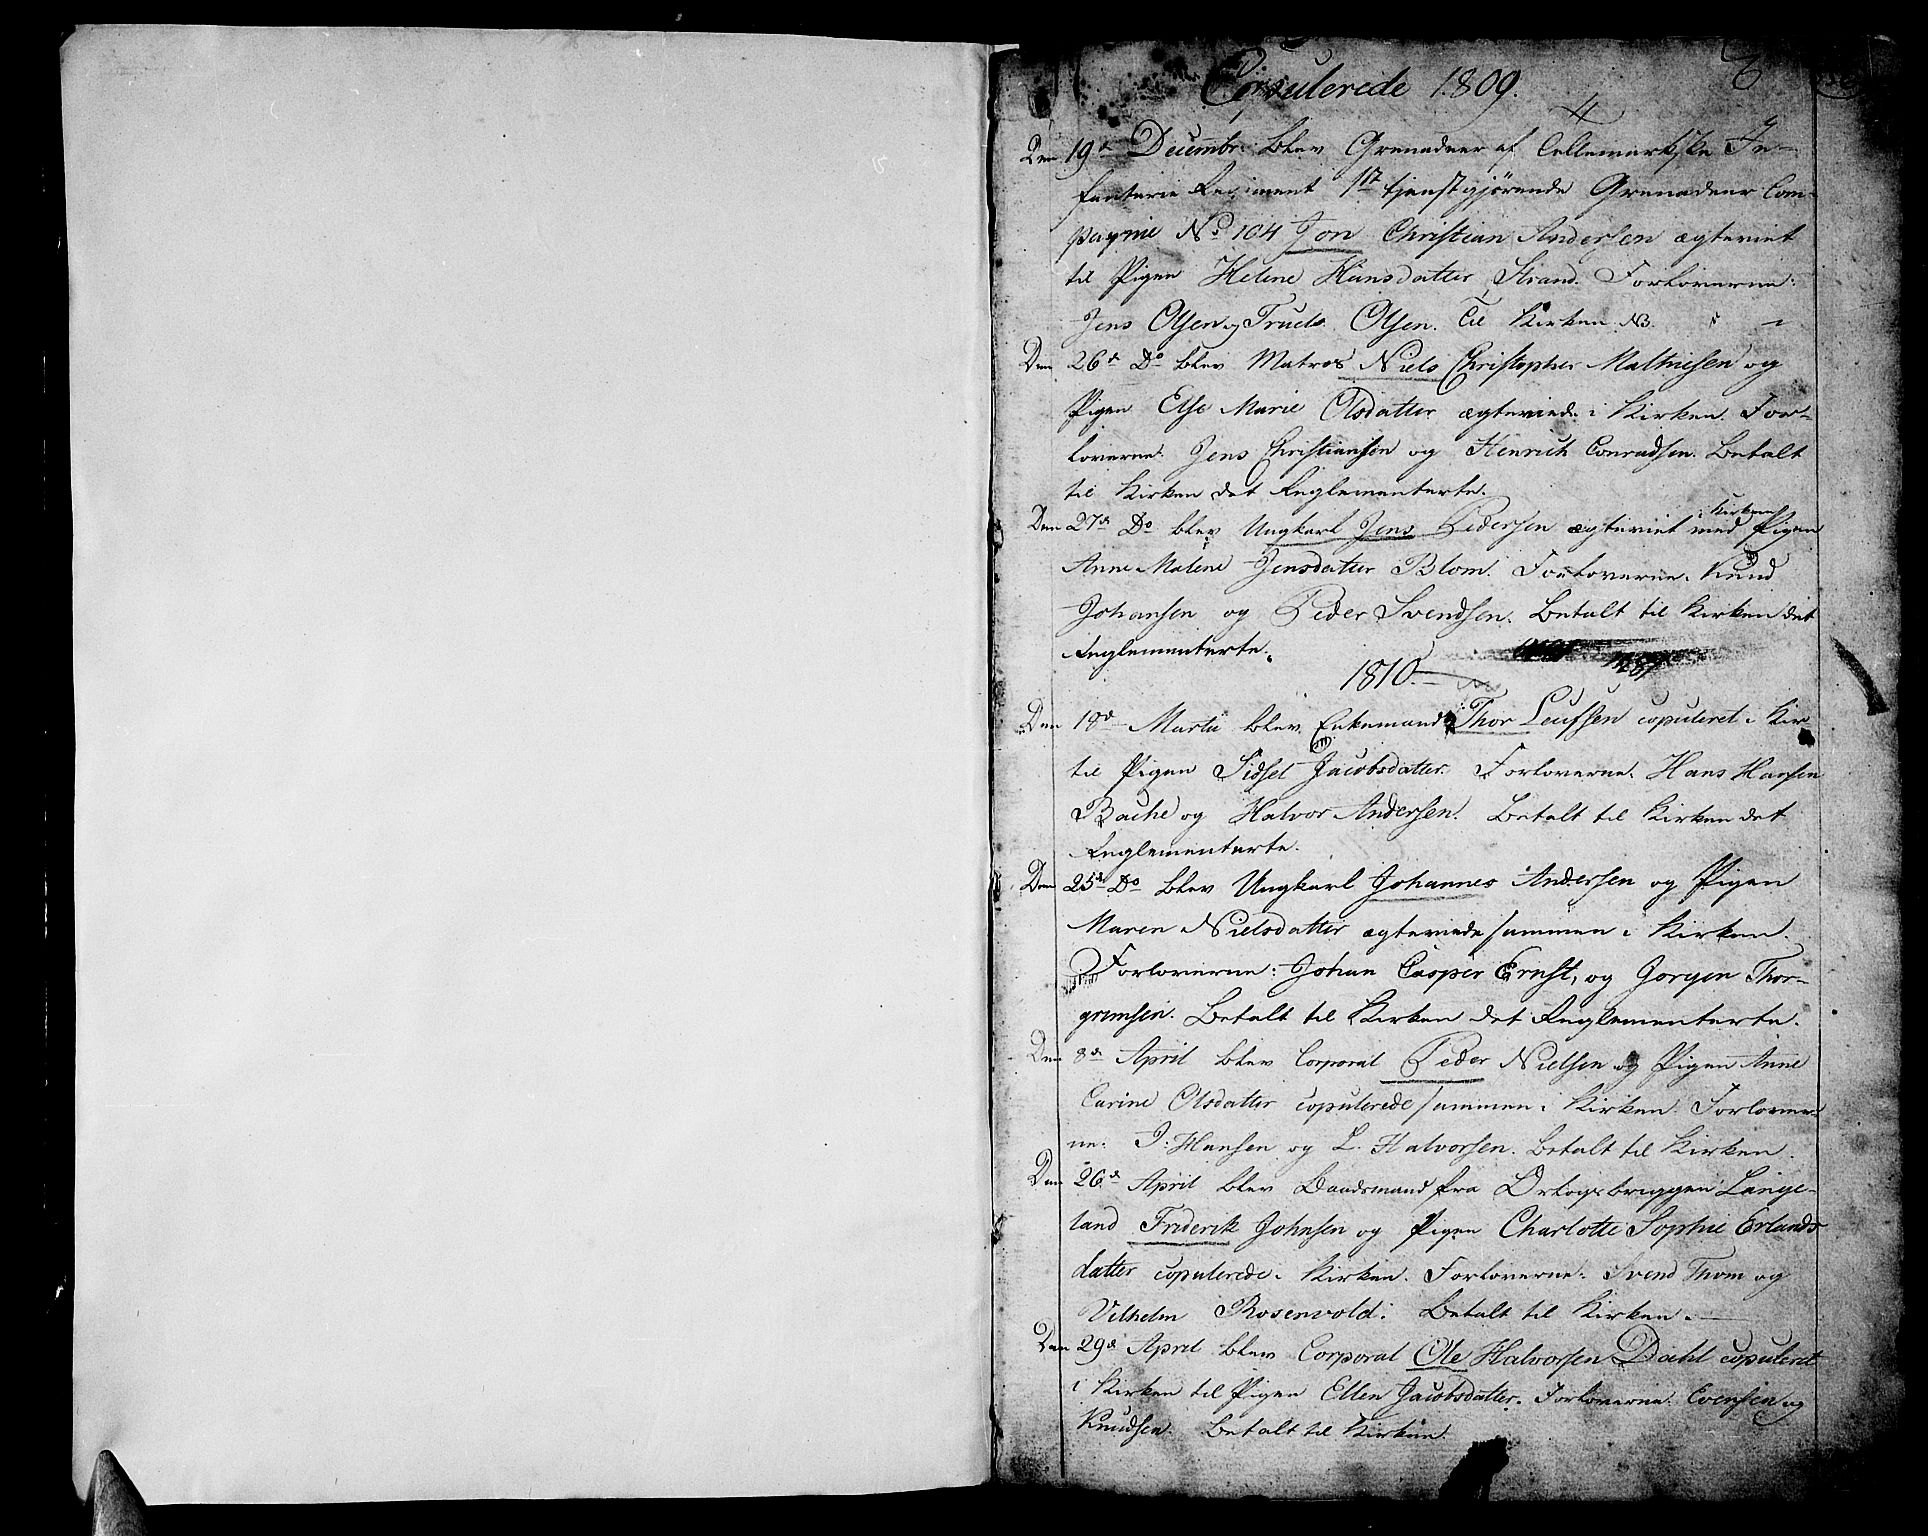 Copulerede 1809.
4
Den 19de Decembr: blev Grenadeer af Tellemarkske In-
fanterie Regiment 1te tjenstgjørende Grenadeer Com-
pagnie No 104 Jon Christian Andersen ægteviet
til Pigen Helene Hansdatter Strand. Forloverne:
Jens Olsen og Truels Olsen. Til Kirken NB.
Den 26de Do blev Matros Niels Christopher Mathiesen og
Pigen Else Marie Olsdatter ægteviede i Kirken. For-
loverne: Jens Christiansen og Henrich Conradsen. Betalt
til Kirken det Reglementerte.
Den 27de Do blev Ungkarl Jens Pedersen ægteviet i Kirken med Pigen
Anne Malene Jensdatter Blom. Forloverne: Knud
Johansen og Peder Svendsen. Betalt til Kirken det
Reglementerte.
1810.
Den 18de Martii blev Enkemand Thor Leufsen copuleret i Kir-
til Pigen Sidsel Jacobsdatter. Forloverne: Hans Hansen
Bache og Halvor Andersen. Betalt til Kirken det
Reglementerte.
Den 25de Do blev Ungkarl Johannes Andersen og Pigen
Maren Nielsdatter ægteviede sammen i Kirken.
Forloverne: Johan Casper Ernst, og Jørgen Thor-
grimsen. Betalt til Kirken det Reglementerte.
Den 8de April blev Corporal Peder Nielsen og Pigen Anne
Carine Olsdatter copulerede sammen i Kirken. Forlover-
ne: I: Hansen og L. Halvorsen. Betalt til Kirken.
Den 26de April blev Baadsmand fra Orlogsbriggen Lange-
land Friderik Johnsen og Pigen Charlotte Sophie Erlands
datter copulerede i Kirken. Forloverne: Svend Thom og
Vilhelm Rosenvold. Betalt til Kirken.
Den 29de April blev Corporal Ole Halvorsen Dahl copuleret
i Kirken til Pigen Ellen Jacobsdatter. Forloverne: Evensen og
Knudsen. Betalt til Kirken.